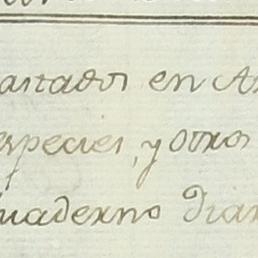 astados en A
species, y otros
quaderno Diar